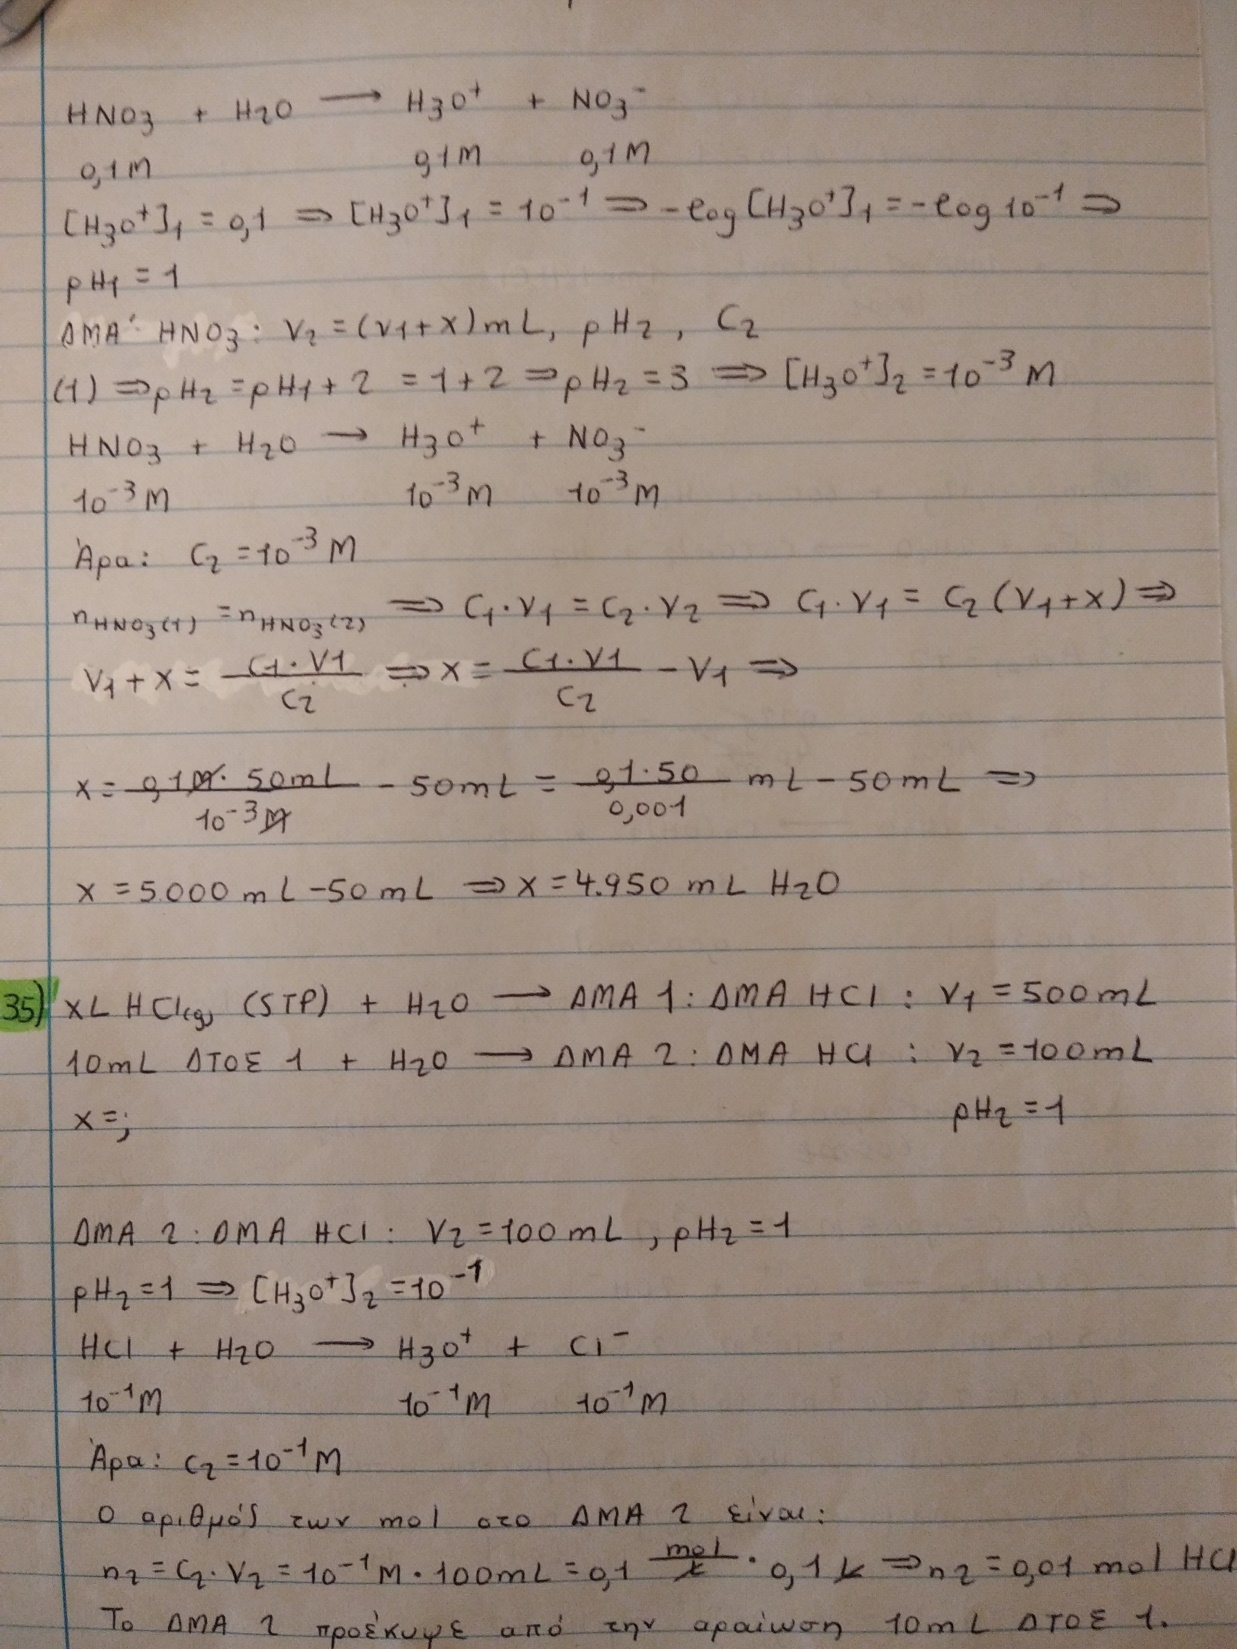 HNO3 + H2O → H3O⁺ + NO3⁻
0,1M 0,1M 0,1M
[H3O⁺]1 = 0,1 ⇒ [H3O⁺]1 = 10⁻¹ ⇒ -log[H3O⁺]1 = -log10⁻¹ ⇒
pH1 = 1
ΔΜΑ' HNO3: V2 = (V1+x)mL, pH2, C2
(1) ⇒ pH2 = pH1 + 2 = 1+2 ⇒ pH2 = 3 ⇒ [H3O⁺]2 = 10⁻³ M
HNO3 + H2O → H3O⁺ + NO3⁻
10⁻³M 10⁻³M 10⁻³M
Άρα: C2 = 10⁻³ M
nHNO3(1) = nHNO3(2) ⇒ C1·V1 = C2·V2 ⇒ C1·V1 = C2(V1+x) ⇒
V1 + x = C1·V1 / C2 ⇒ x = C1·V1 / C2 - V1 ⇒
x = 0,1M·50mL / 10⁻³M - 50mL = 0,1·50 / 0,001 mL - 50mL ⇒
x = 5.000 mL - 50 mL ⇒ x = 4.950 mL H2O
35) xL HCl(g) (STP) + H2O → ΔΜΑ 1: ΔΜΑ HCl: V1 = 500mL
10mL ΔΤΟΣ 1 + H2O → ΔΜΑ 2: ΔΜΑ HCl: V2 = 100mL
x=; pH2 = 1
ΔΜΑ 2: ΔΜΑ HCl: V2 = 100 mL, pH2 = 1
pH2 = 1 ⇒ [H3O⁺]2 = 10⁻¹
HCl + H2O → H3O⁺ + Cl⁻
10⁻¹M 10⁻¹M 10⁻¹M
Άρα: C2 = 10⁻¹M
Ο αριθμός των mol στο ΔΜΑ 2 είναι:
n2 = C2·V2 = 10⁻¹M·100mL = 0,1 mol/L · 0,1 L ⇒ n2 = 0,01 mol HCl
Το ΔΜΑ 2 προέκυψε από την αραίωση 10mL ΔΤΟΣ 1.